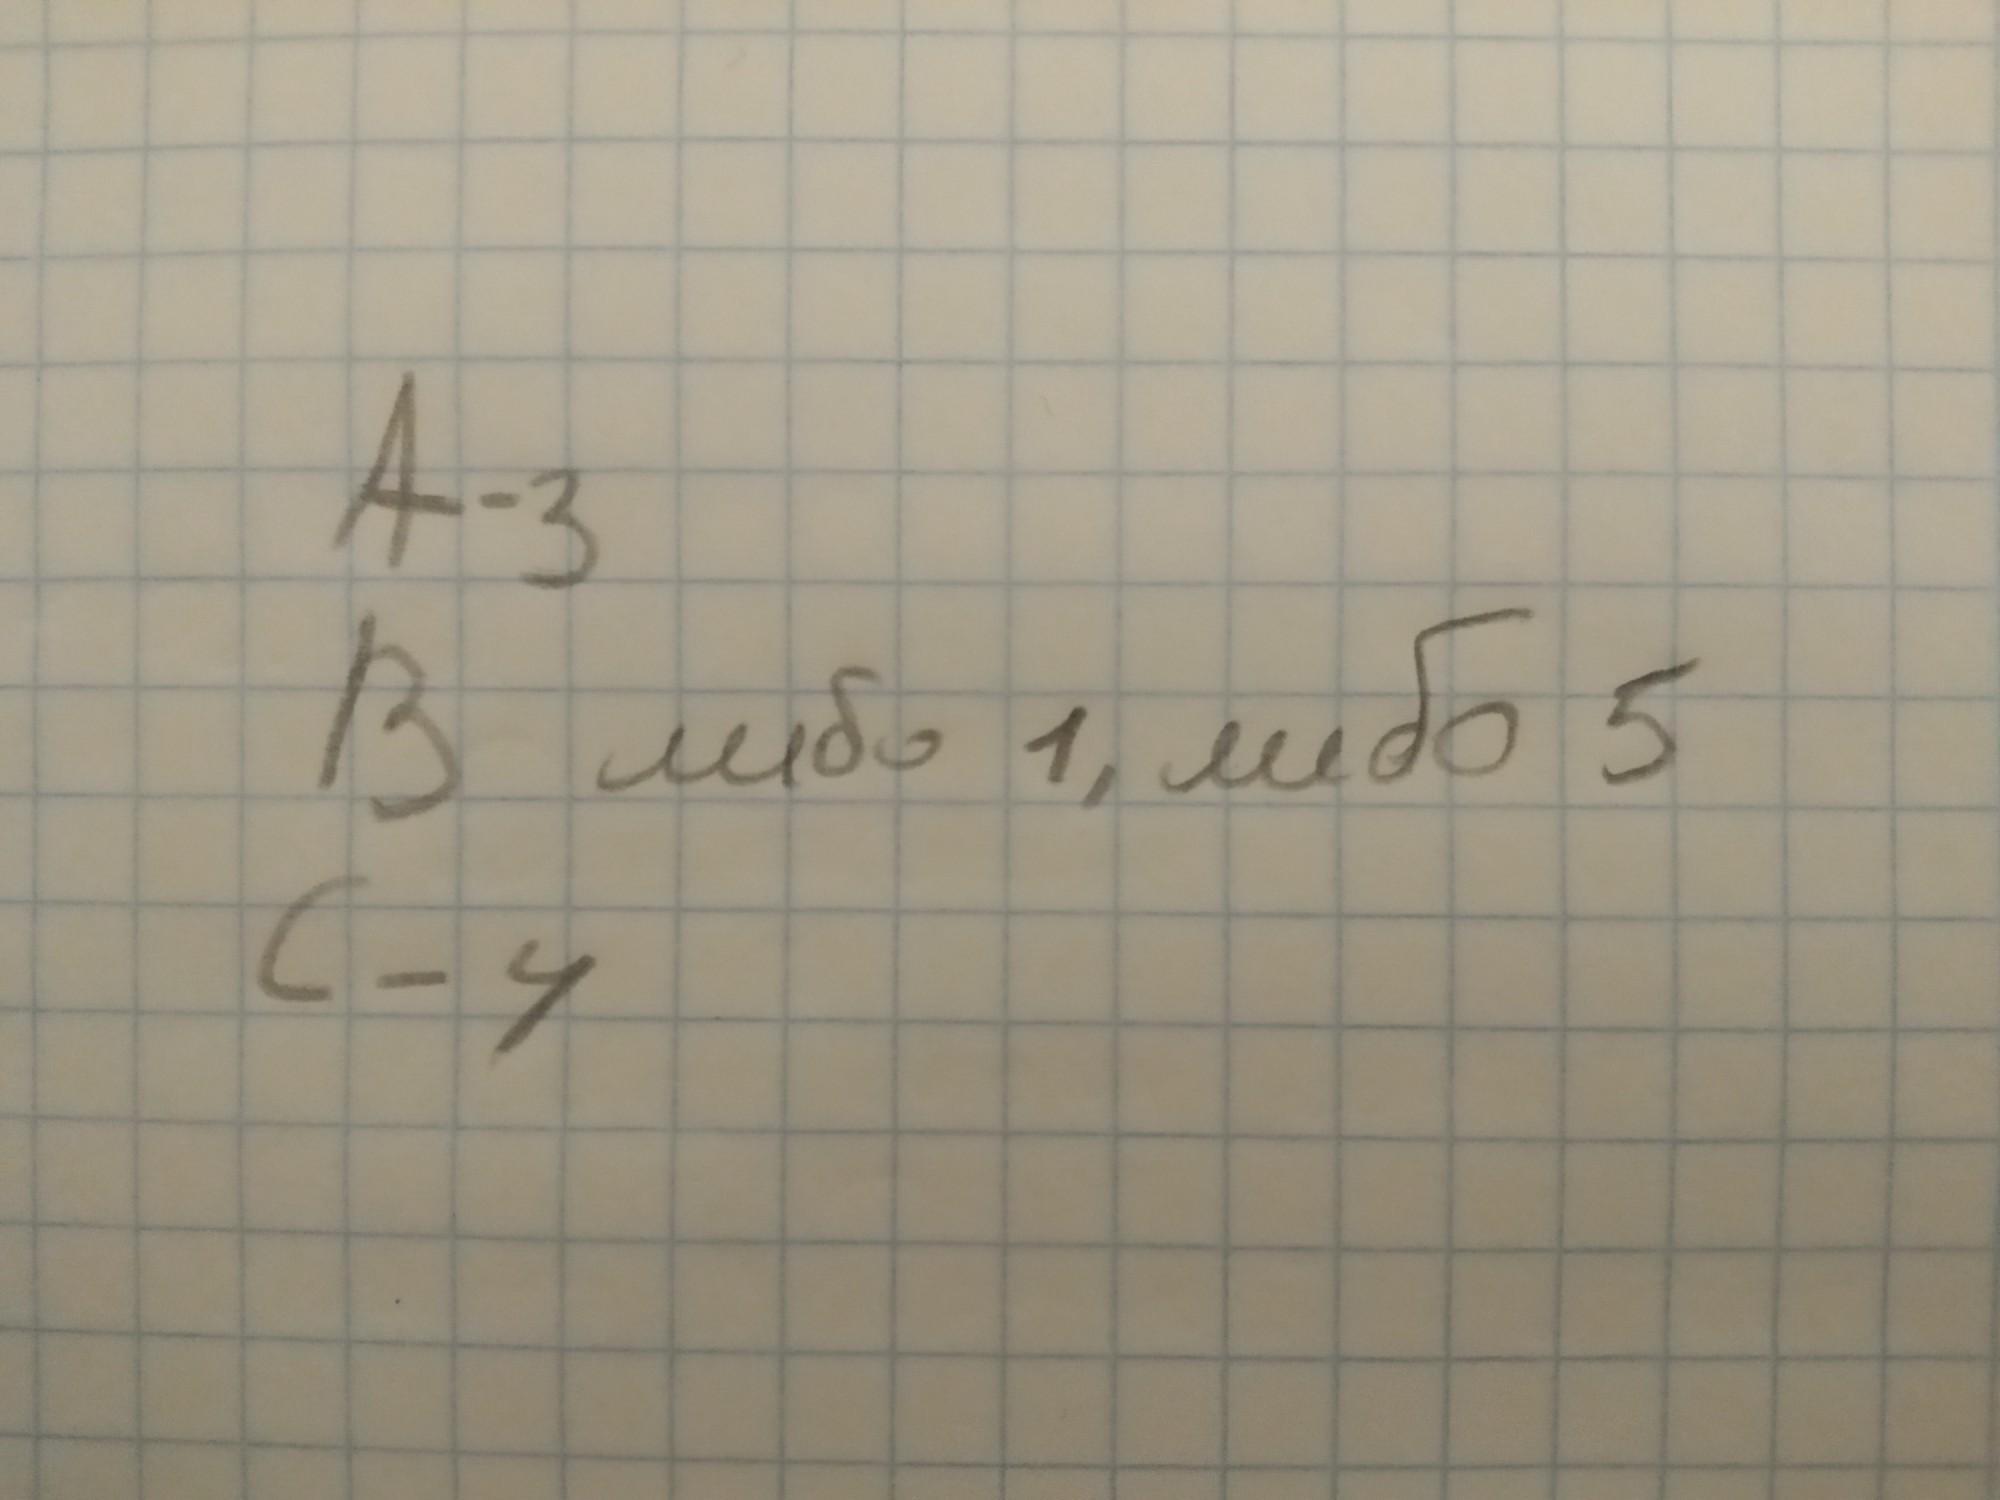 A-3
B либо 1, либо 5
C - 4